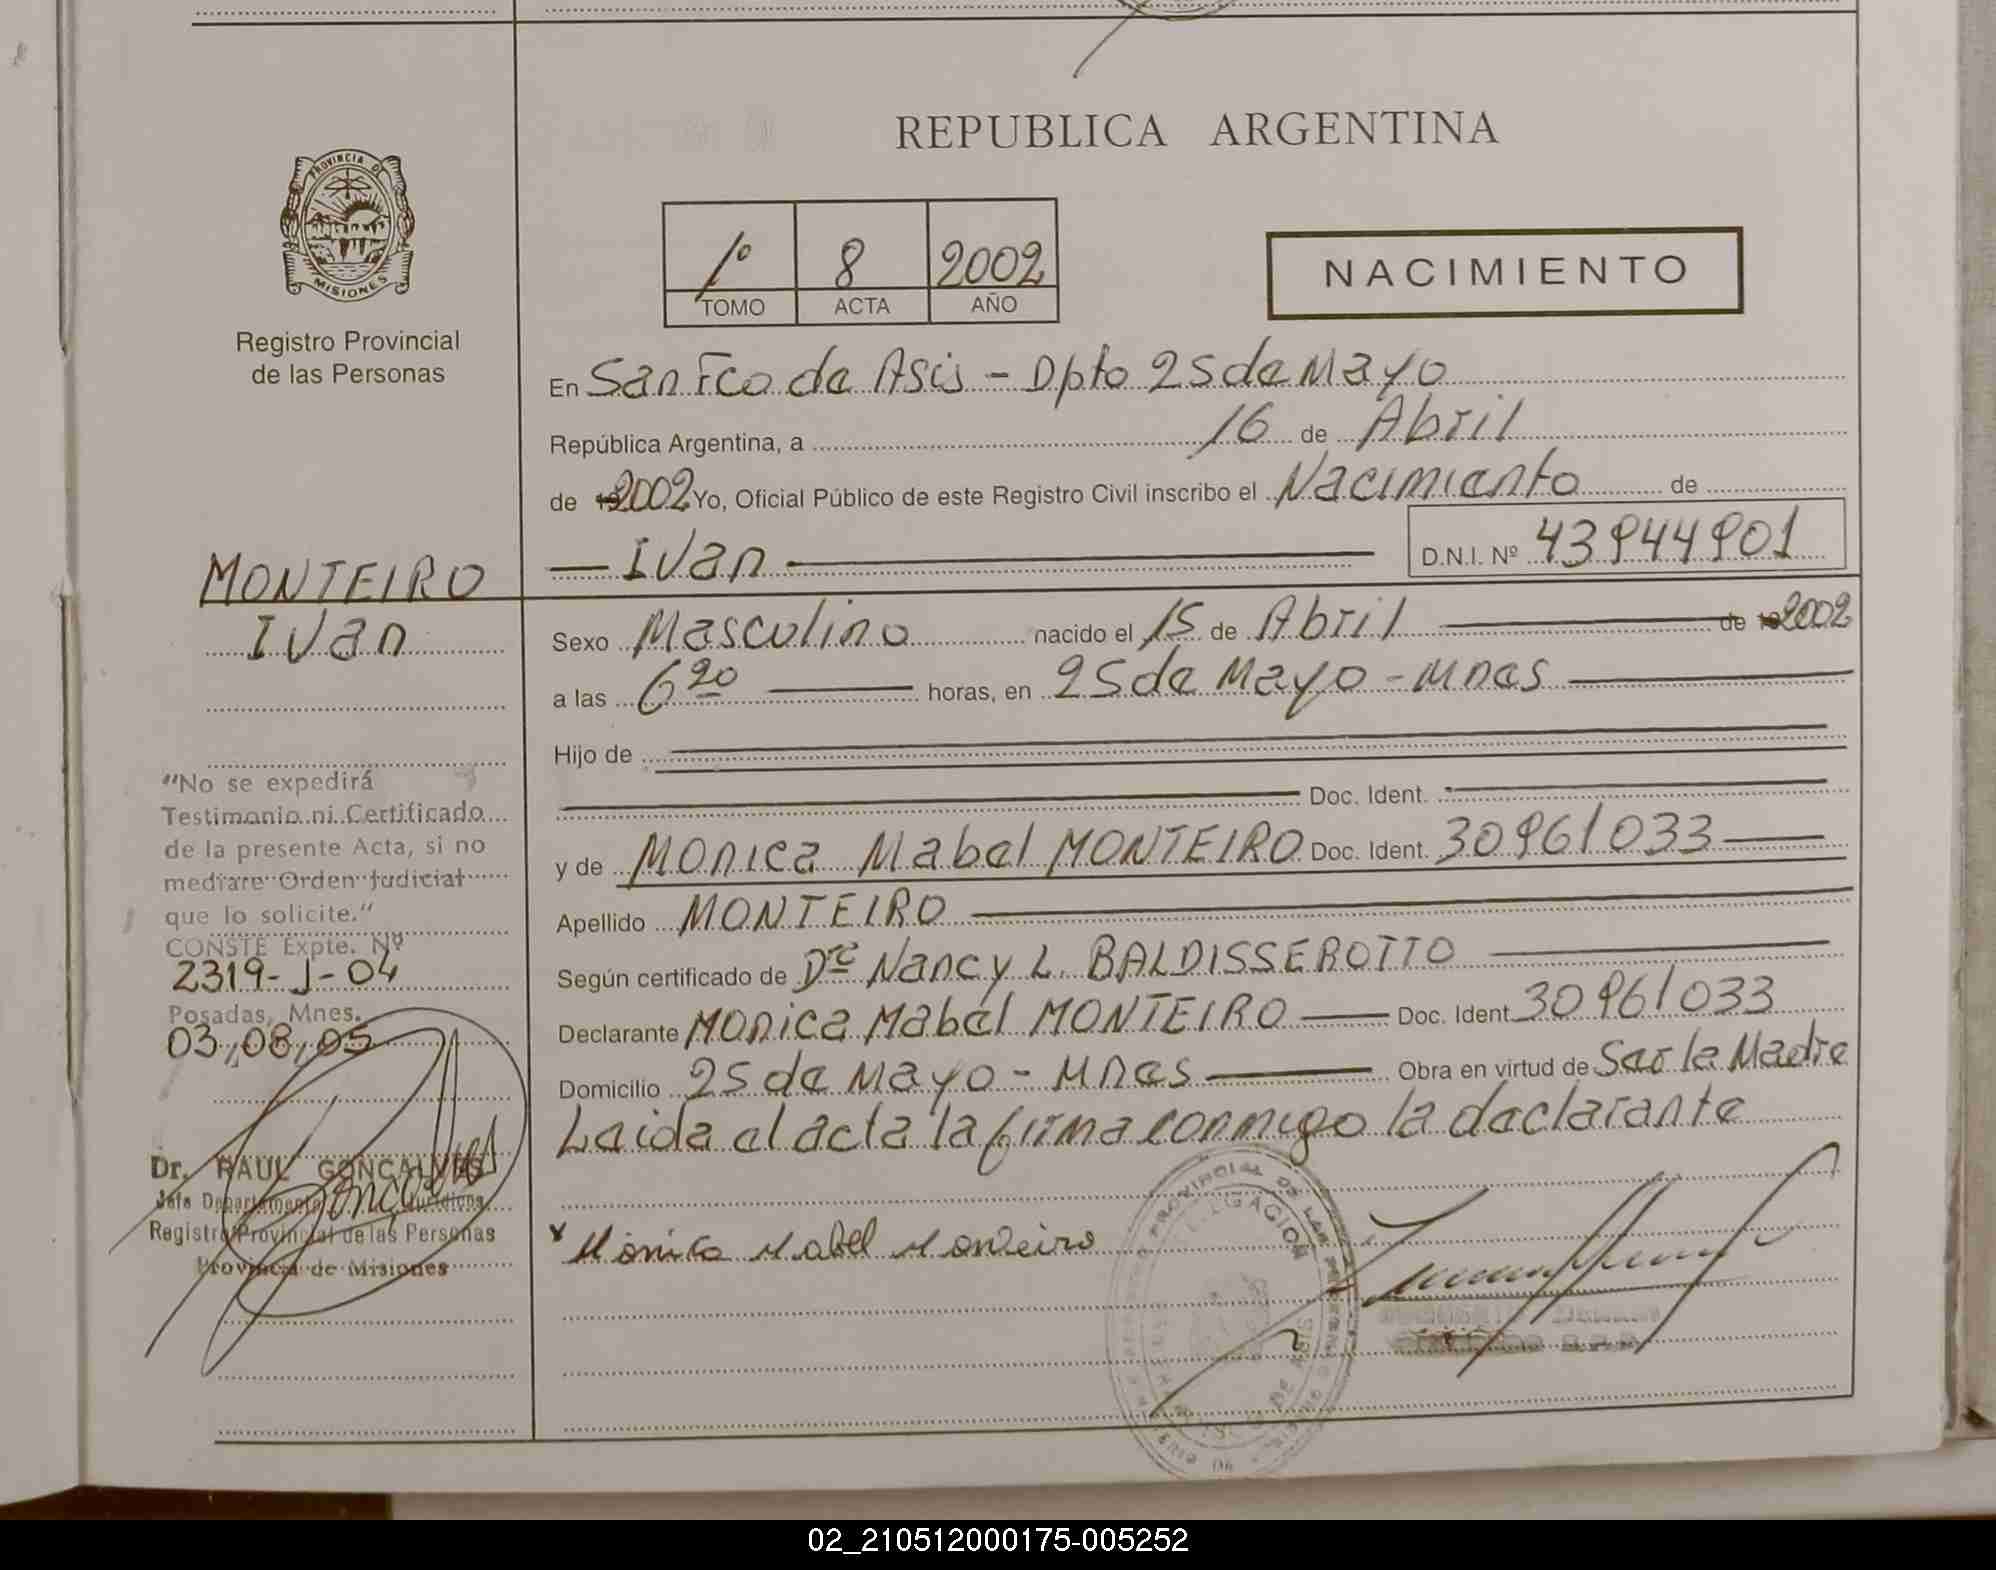 REPUBLICA ARGENTINA
PROVINCIA DE
MISIONES
Registro Provincial
de las Personas
1º 8 2002
TOMO ACTA AÑO
NACIMIENTO
En San Fco de Asis - Dpto 25 de Mayo
República Argentina, a 16 de Abril
de 2002 Yo, Oficial Público de este Registro Civil inscribo el Nacimiento de
Ivan D.N.I. Nº 43944901
MONTEIRO
Ivan
Sexo Masculino nacido el 15 de Abril de 2002
a las 6 20 horas, en 25 de Mayo - Mnes
Hijo de
Doc. Ident.
y de Monica Mabel MONTEIRO Doc. Ident. 30961033
Apellido MONTEIRO
Según certificado de Dra Nancy L. BALDISSEROTTO
Declarante Monica Mabel MONTEIRO Doc. Ident 30961033
Domicilio 25 de Mayo - Mnes Obra en virtud de Ser la Madre
Leida el acta la firma conmigo la declarante
"No se expedirá
Testimonio ni Certificado
de la presente Acta, si no
mediare Orden Judicial
que lo solicite."
CONSTE Expte. Nº
2319-J-04
Posadas, Mnes.
03,08,05
Dr. RAUL GONCALVES
Jefe Departamento Jurídicos
Registro Provincial de las Personas
Provincia de Misiones
x Monica Mabel Monteiro
PROVINCIAL DE LAS PERSONAS
DELEGACION
02_210512000175-005252